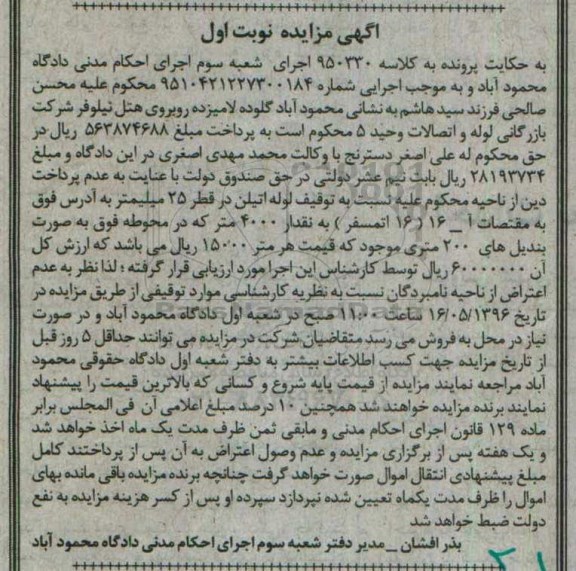 آگهی مزایده نوبت اول
به حکایت پرونده به کلاسه ۹۵۰۳۳۰ اجرای شعبه سوم اجرای احکام مدنی دادگاه
محمود آباد و به موجب اجرایی شماره ۹۵۱۰۴۲۱۲۲۷۳۰۰۱۸۴ محکوم علیه محسن
صالحی فرزند سید هاشم به نشانی محمود آباد گلوده لامیزده روبروی هتل نیلوفر شرکت
بازرگانی لوله و اتصالات وحید ۵ محکوم است به پرداخت مبلغ ۵۶۳۸۷۴۶۸۸ ریال در
حق محکوم له علی اصغر دسترنج با وکالت محمد مهدی اصغری در این دادگاه و مبلغ
۲۸۱۹۳۷۳۴ ریال بابت نیم عشر دولتی در حق صندوق دولت با عنایت به عدم پرداخت
دین از ناحیه محکوم علیه نسبت به توقیف لوله اتیلن در قطر ۲۵ میلیمتر به آدرس فوق
به مقتصات آ _ ۱۶ ( ۱۶ اتمسفر ) به نقدار ۴۰۰۰ متر که در محوطه فوق به صورت
بندیل های ۲۰۰ متری موجود که قیمت هر متر ۱۵۰۰۰ ریال می باشد که ارزش کل
آن ۶۰۰۰۰۰۰۰ ریال توسط کارشناس این اجرا مورد ارزیابی قرار گرفته ؛ لذا نظر به عدم
اعتراض از ناحیه نامبردگان نسبت به نظریه کارشناسی موارد توقیفی از طریق مزایده در
تاریخ ۱۶/۰۵/۱۳۹۶ ساعت ۱۱:۰۰ صبح در شعبه اول دادگاه محمود آباد و در صورت
نیاز در محل به فروش می رسد متقاضیان شرکت در مزایده می توانند حداقل ۵ روز قبل
از تاریخ مزایده جهت کسب اطلاعات بیشتر به دفتر شعبه اول دادگاه حقوقی محمود
آباد مراجعه نمایند مزایده از قیمت پایه شروع و کسانی که بالاترین قیمت را پیشنهاد
نمایند برنده مزایده خواهند شد همچنین ۱۰ درصد مبلغ اعلامی آن فی المجلس برابر
ماده ۱۲۹ قانون اجرای احکام مدنی و مابقی ثمن ظرف مدت یک ماه اخذ خواهد شد
و یک هفته پس از برگزاری مزایده و عدم وصول اعتراض به آن پس از پرداختند کامل
مبلغ پیشنهادی انتقال اموال صورت خواهد گرفت چنانچه برنده مزایده باقی مانده بهای
اموال را ظرف مدت یکماه تعیین شده نپردازد سپرده او پس از کسر هزینه مزایده به نفع
دولت ضبط خواهد شد
بذر افشان _ مدیر دفتر شعبه سوم اجرای احکام مدنی دادگاه محمود آباد